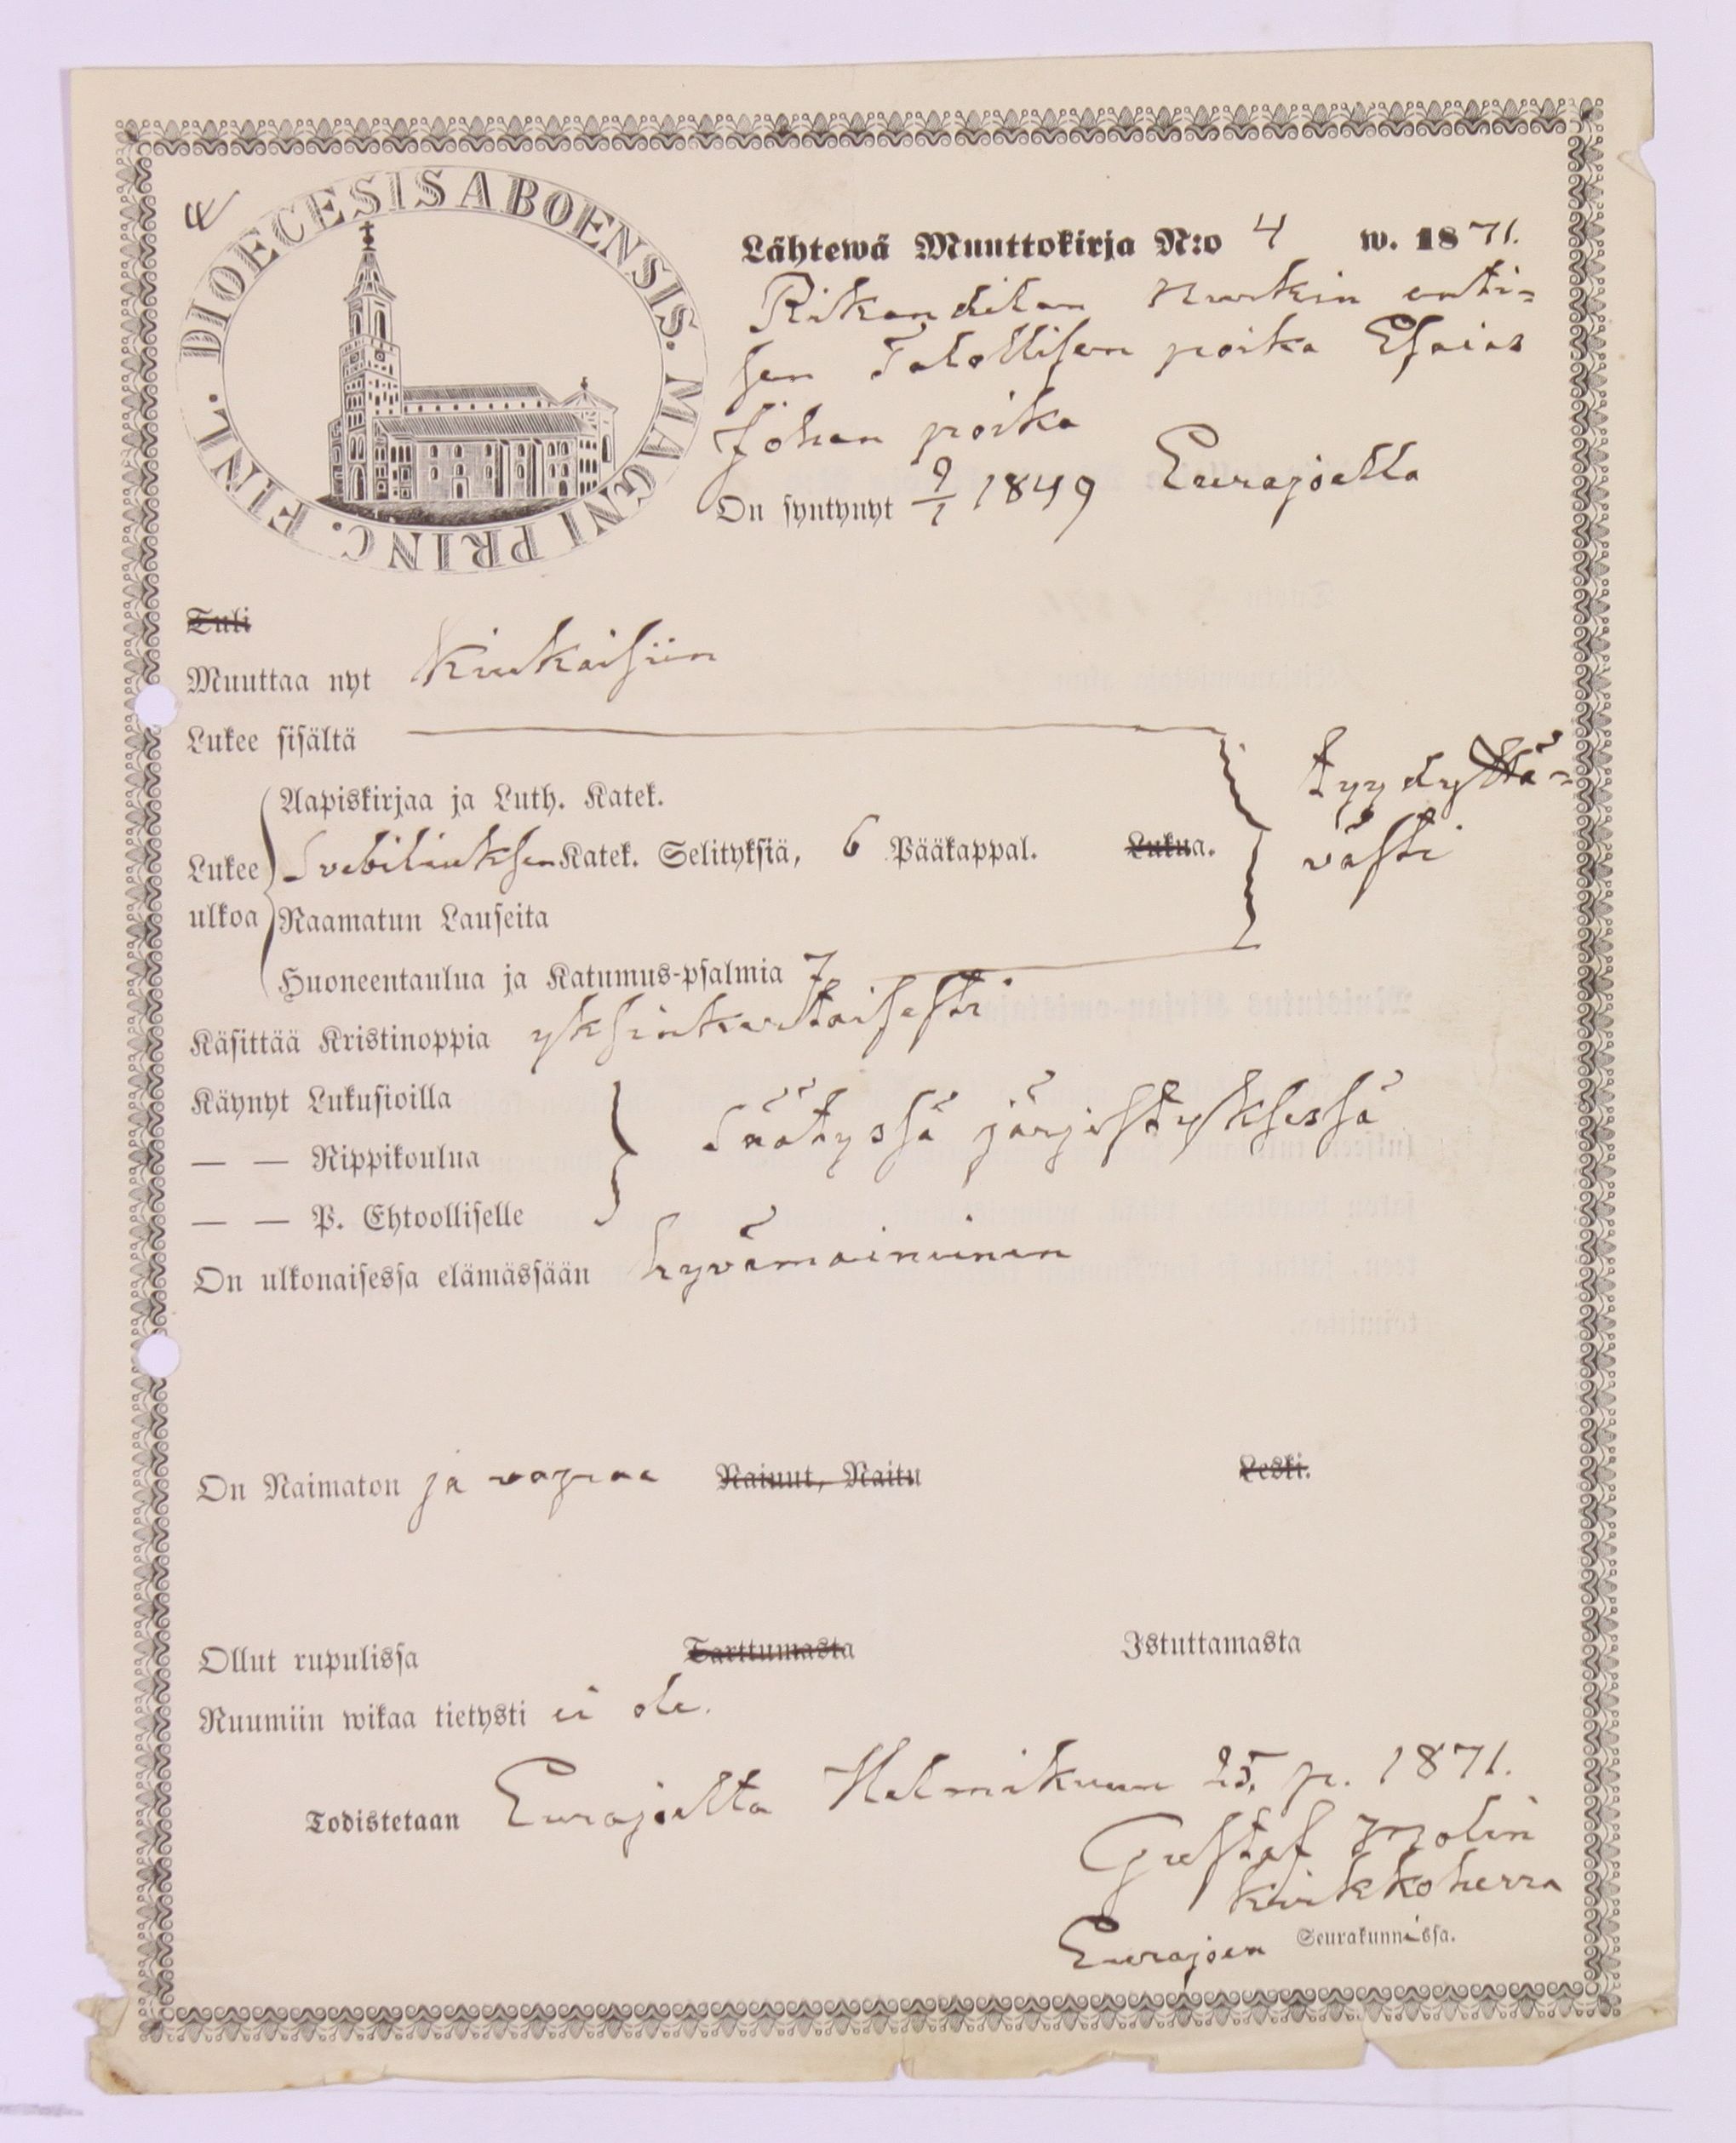 DIOECESIS ABOENSIS. MAGNI PRINC. FINL.
Lähtewä Muuttokirja N:o 4 w. 1871.
Rikandilan Kurkin enti-
sen Talollisen poika Esaias
Johan poika
On syntynyt 9/1 1849 Eurajoella
Tuli
Muuttaa nyt Kiukaisiin
Lukee sisältä
tyydyttä-
västi
Aapiskirjaa ja Luth. Katek.
Lukee ulkoa
Svebiliuksen Katek. Selityksiä, 6 Pääkappal. Lukua.
Raamatun Lauseita
Huoneentaulua ja Katumus-psalmia 7
Käsittää Kristinoppia yksinkertaisesti
Käynyt Lukusioilla
— — Rippikoulua
Säätyssä järjestyksessä
— — P. Ehtoolliselle
On ulkonaisessa elämässään hyvämaineinen
On Naimaton ja vapaa Nainut, Naitu Leski.
Ollut rupulissa Tarttumasta Istuttamasta
Ruumiin wikaa tietysti ei ole.
Todistetaan Eurajoella Helmikuun 25. p. 1871.
Gustaf Molin
Kirkkoherra
Eurajoen Seurakunnissa.